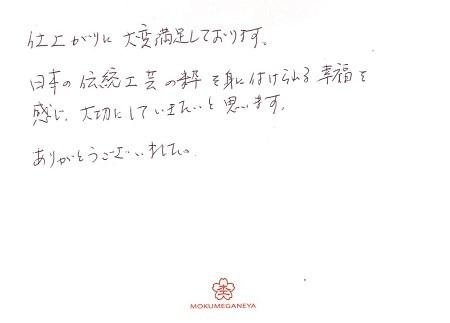 仕上がりに大変満足しております。
日本の伝統工芸の粋を身に付けられる幸福を
感じ、大切にしていきたいと思います。
ありがとうございました。
MOKUMEGANEYA